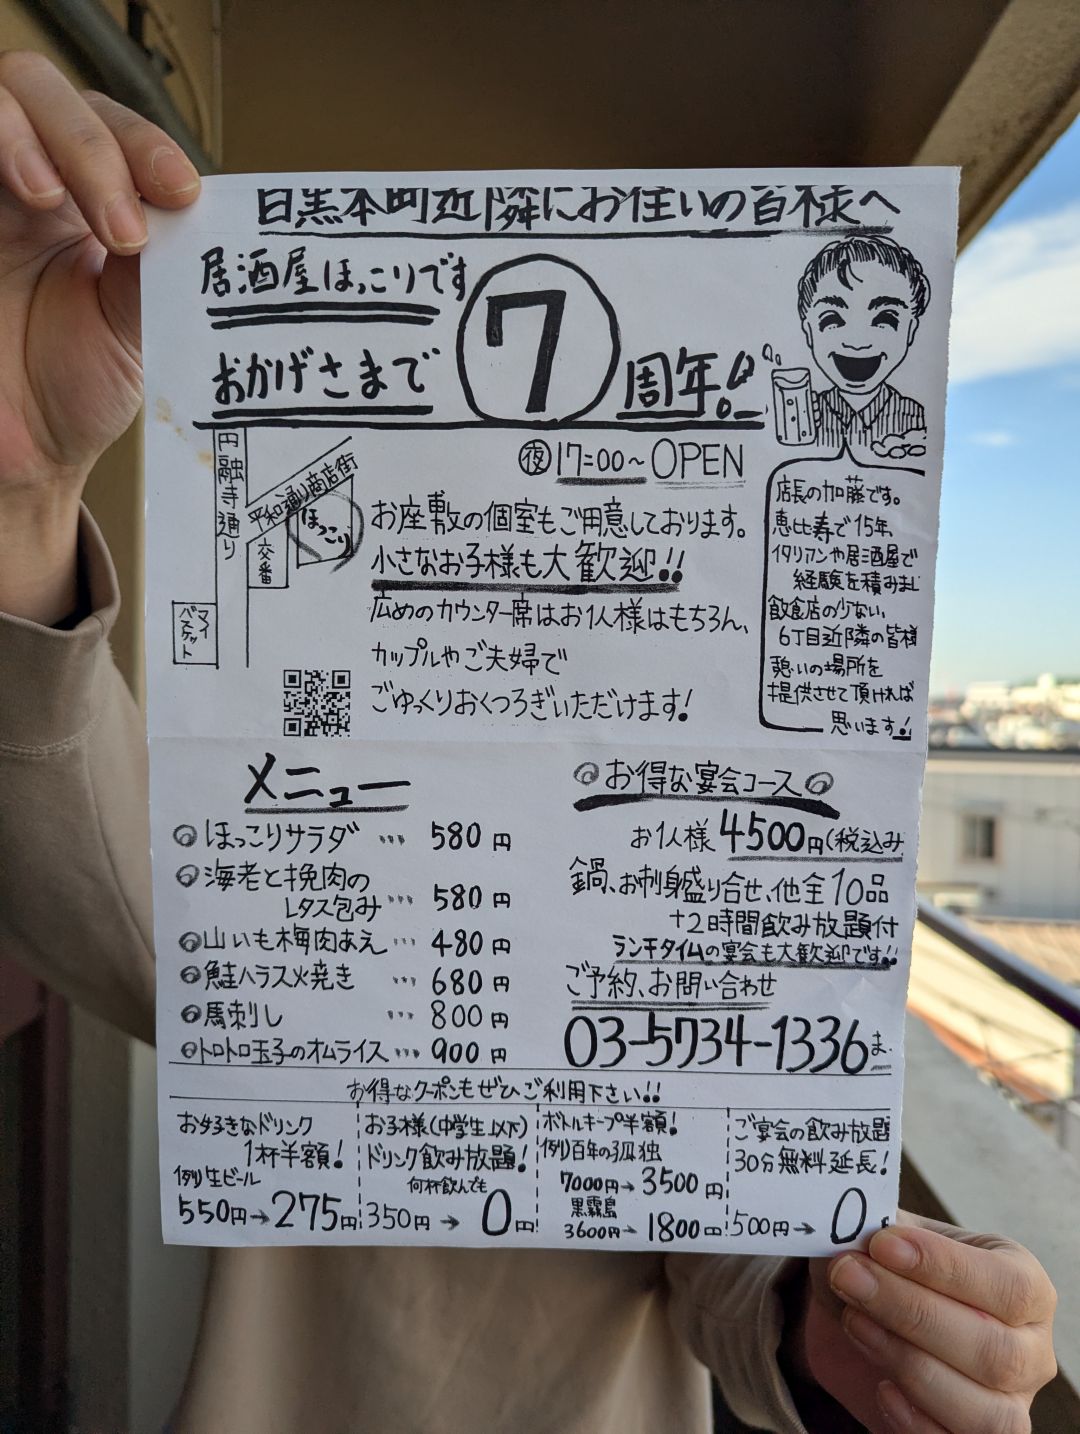 目黒本町近隣にお住いの皆様へ
居酒屋ほっこりです
おかげさまで
7
周年!!
円融寺通り
平和通り商店街
ほっこり
交番
マイバスケット
夜 17:00〜OPEN
お座敷の個室もご用意しております。
小さなお子様も大歓迎!!
広めのカウンター席はお1人様はもちろん、
カップルやご夫婦で
ごゆっくりおくつろぎいただけます!
店長の加藤です。
恵比寿で15年、
イタリアンや居酒屋で
経験を積みまし
飲食店の少ない、
6丁目近隣の皆様
憩いの場所を
提供させて頂ければ
思います!
メニュー
ほっこりサラダ … 580円
海老と挽肉の
レタス包み … 580円
山いも梅肉あえ … 480円
鮭ハラス火焼き … 680円
馬刺し … 800円
トロトロ玉子のオムライス … 900円
お得な宴会コース
お1人様 4500円(税込み
鍋、お刺身盛り合せ、他全10品
+2時間飲み放題付
ランチタイムの宴会も大歓迎です!!
ご予約、お問い合わせ
03-5734-1336ま
お得なクーポンもぜひご利用下さい!!
お好きなドリンク
1杯半額!
例)生ビール
550円→275円
お子様(中学生以下)
ドリンク飲み放題!
何杯飲んでも
350円→0円
ボトルキープ半額!
例)百年の孤独
7000円→3500円
黒霧島
3600円→1800円
ご宴会の飲み放題
30分無料延長!
500円→0